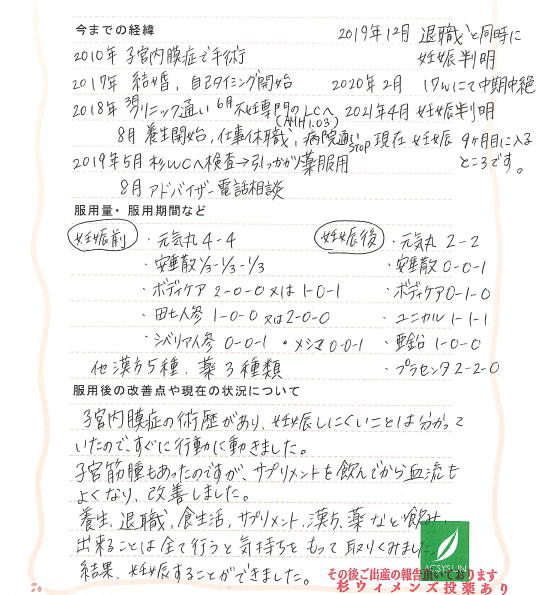 今までの経緯
2010年 子宮内膜症で手術
2017年 結婚,自己タイミング開始
2018年 3月クリニック通い 6月 不妊専門のLCへ
(AMH1.03)
8月 養生開始,仕事休職,病院通いSTOP
2019年5月 杉WCへ検査→引っかかり薬服用
8月 アドバイザー電話相談
2019年12月 退職と同時に
妊娠判明
2020年2月 17wにて中期中絶
2021年4月 妊娠判明
現在 妊娠 9ヶ月目に入る
ところです。
服用量・服用期間など
妊娠前
・元気丸 4-4
・安垂散 1/3-1/3-1/3
・ボディケア 2-0-0 又は 1-0-1
・田七人参 1-0-0 又は 2-0-0
・シベリア人参 0-0-1 ・メシマ 0-0-1
他 漢方5種,薬3種類
妊娠後
・元気丸 2-2
・安垂散 0-0-1
・ボディケア 0-1-0
・ユニカル 1-1-1
・亜鉛 1-0-0
・プラセンタ 2-2-0
服用後の改善点や現在の状況について
子宮内膜症の術歴があり、妊娠しにくいことは分かって
いたので、すぐに行動に動きました。
子宮筋腫もあったのですが、サプリメントを飲んでから血流も
よくなり、改善しました。
養生,退職,食生活,サプリメント,漢方,薬など飲み,
出来ることは全て行うと気持ちをもって取りくみました。
結果、妊娠することができました。
ACSYSUN
その後ご出産の報告頂いております
杉ウィメンズ投薬あり